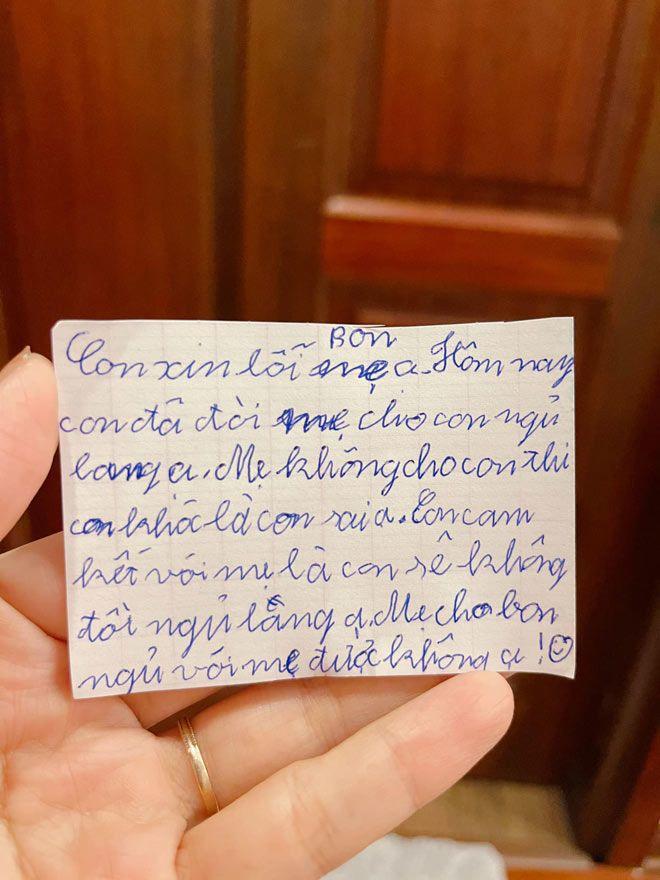 BON
Con xin lỗi mẹ ạ. Hôm nay
con đã đòi mẹ cho con ngủ
lang ạ. Mẹ không cho con thì
con khóc là con sai ạ. Con cam
kết với mẹ là con sẽ không
đòi ngủ lằng ạ. Mẹ cho bon
ngủ với mẹ được không ạ!